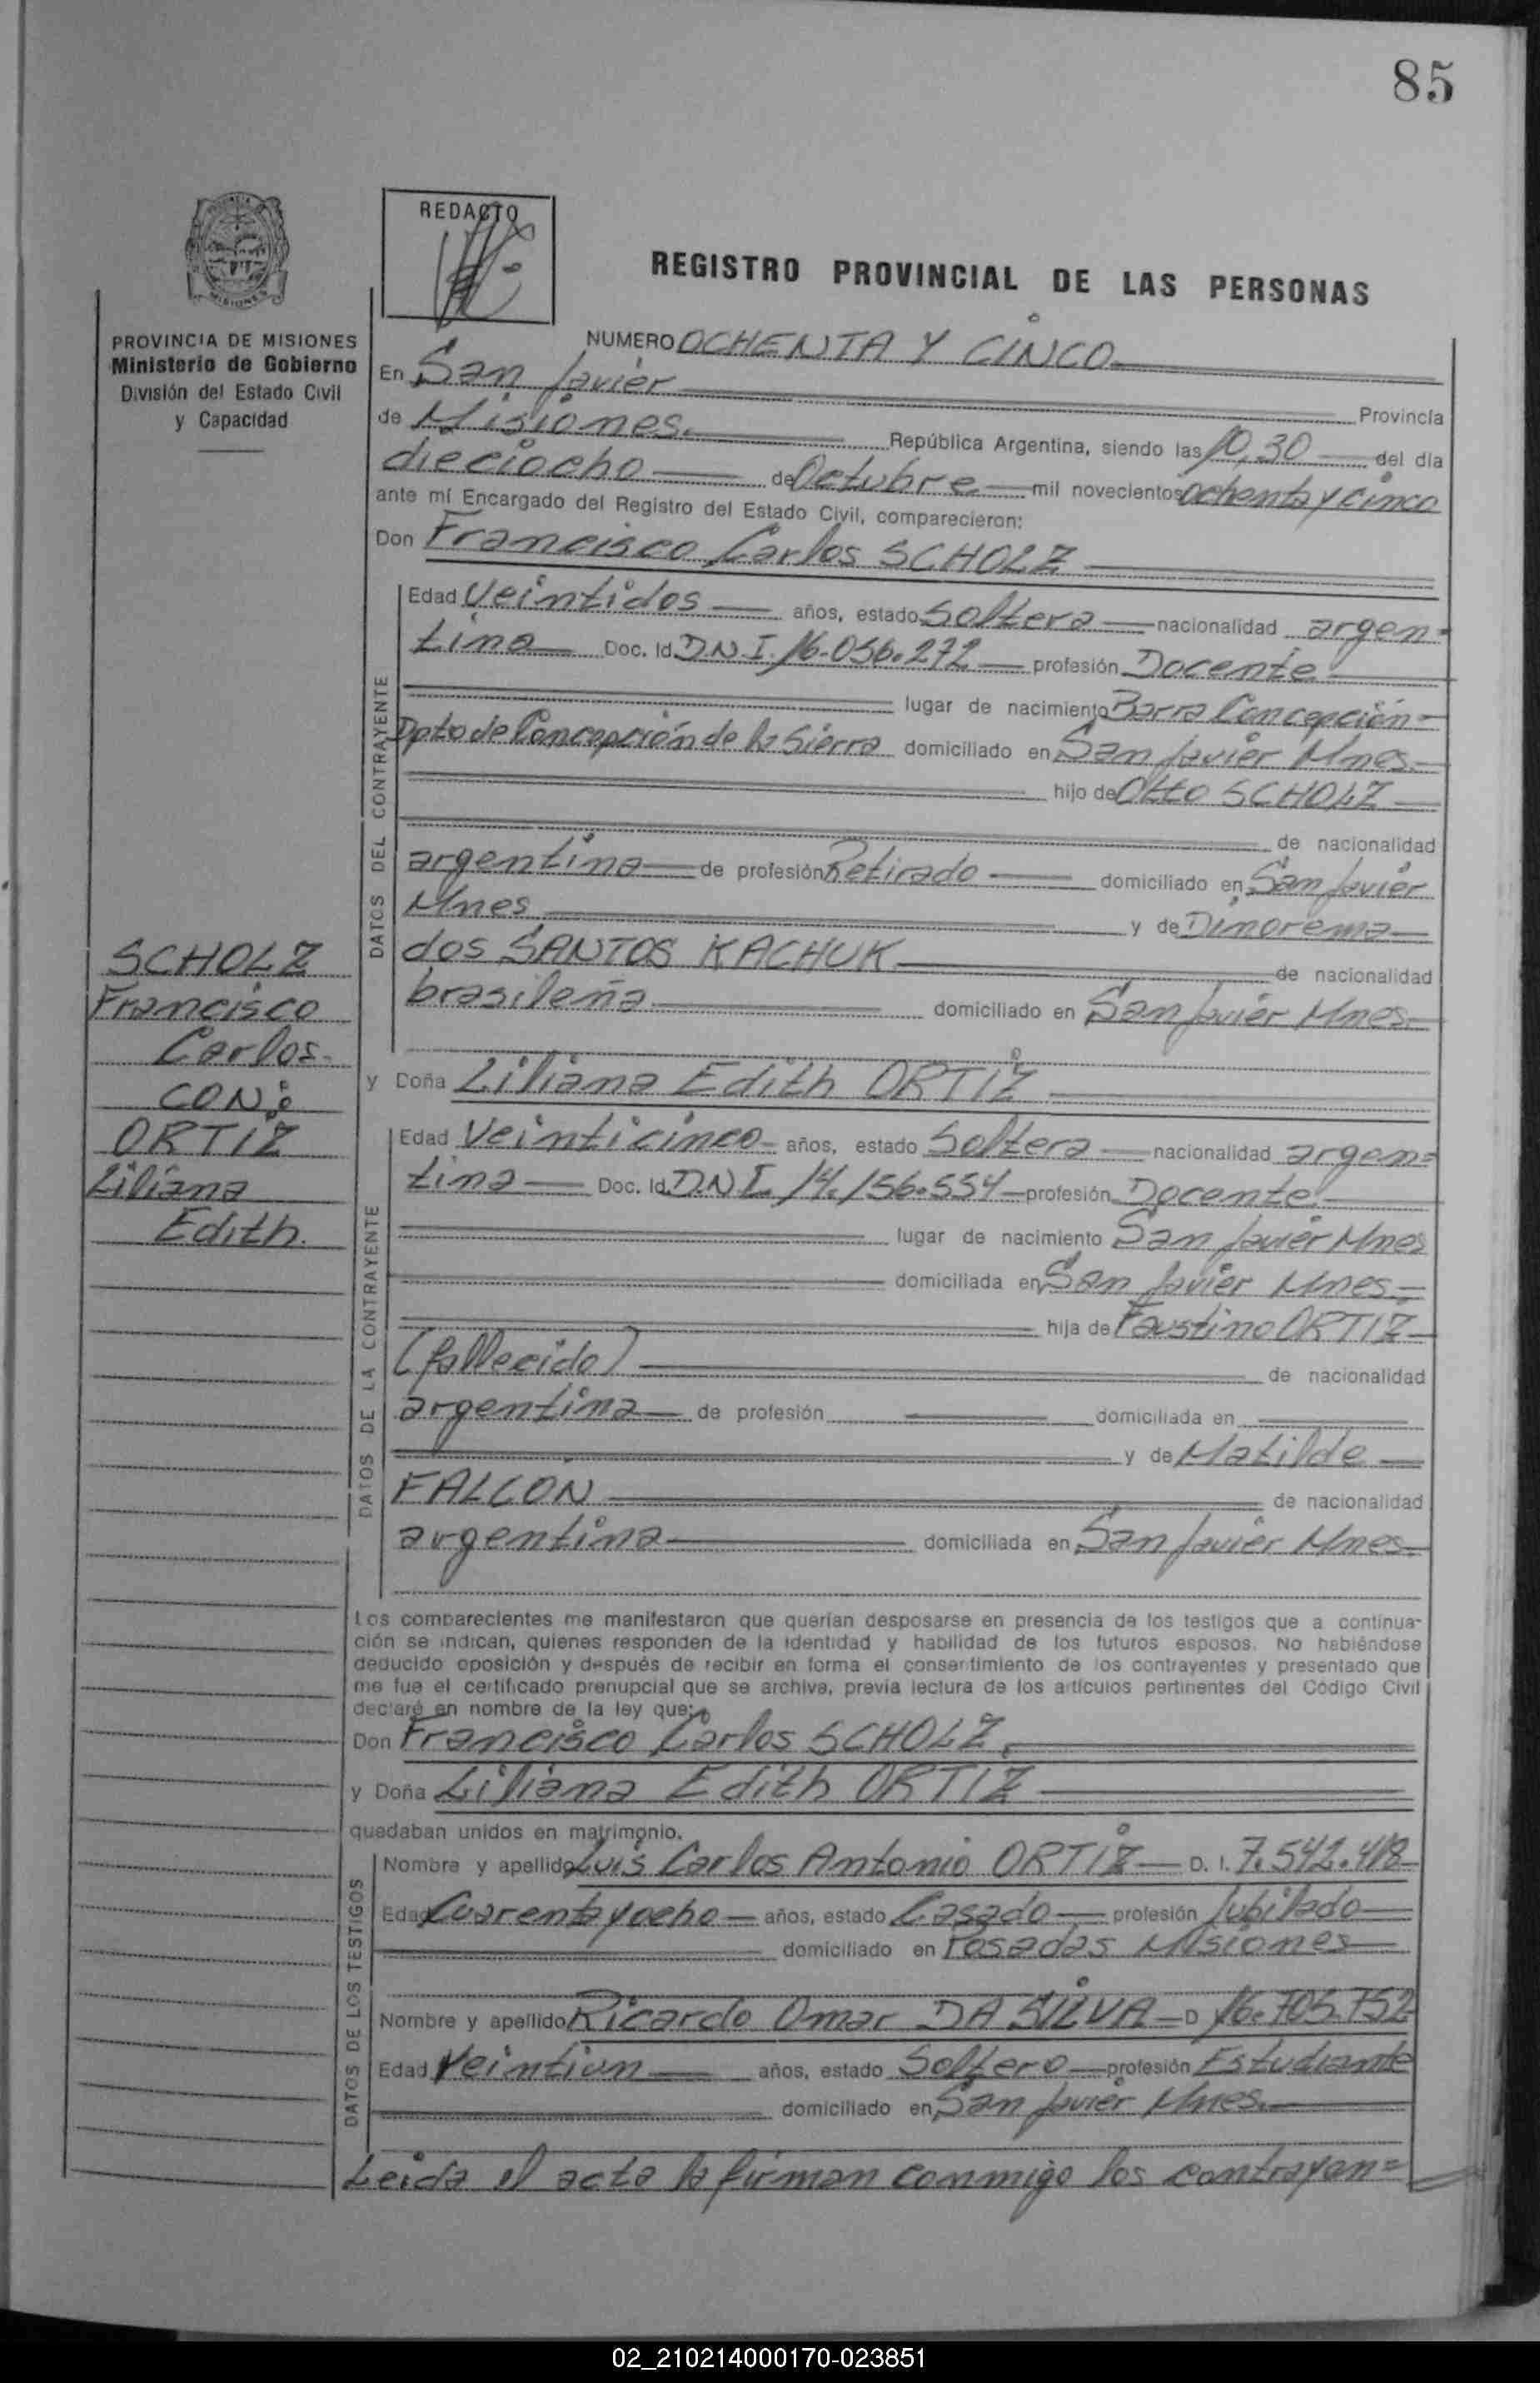 85
REDACTO
REGISTRO PROVINCIAL DE LAS PERSONAS
PROVINCIA DE MISIONES
Ministerio de Gobierno
División del Estado Civil
y Capacidad
NUMERO OCHENTA Y CINCO
En San Javier Provincia
de Misiones. República Argentina, siendo las 10,30 del día
dieciocho de Octubre mil novecientos ochenta y cinco
ante mí Encargado del Registro del Estado Civil, comparecieron:
Don Francisco Carlos SCHOLZ
DATOS DEL CONTRAYENTE
Edad Veintidos años, estado Soltero nacionalidad argen=
tina Doc. Id. D.N.I. 16.056.272 profesión Docente
lugar de nacimiento Barra Concepción=
Dpto de Concepción de la Sierra domiciliado en San Javier Mnes.
hijo de Otto SCHOLZ
de nacionalidad
argentina de profesión Retirado domiciliado en San Javier
Mnes y de Dinorema
dos SANTOS KACHUK de nacionalidad
brasileña domiciliado en San Javier Mnes.
SCHOLZ
Francisco
Carlos.
CON:
ORTIZ
Liliana
Edith.
y Doña Liliana Edith ORTIZ
DATOS DE LA CONTRAYENTE
Edad Veinticinco años, estado Soltera nacionalidad argen=
tina Doc. Id. D.N.I. 14.156.554 profesión Docente
lugar de nacimiento San Javier Mnes
domiciliada en San Javier Mnes
hija de Faustino ORTIZ
(fallecido) de nacionalidad
argentina de profesión domiciliada en
y de Matilde
FALCON de nacionalidad
argentina domiciliada en San Javier Mnes.
Los comparecientes me manifestaron que querían desposarse en presencia de los testigos que a continua-
ción se indican, quienes responden de la identidad y habilidad de los futuros esposos. No habiéndose
deducido oposición y después de recibir en forma el consentimiento de los contrayentes y presentado que
me fue el certificado prenupcial que se archiva, previa lectura de los artículos pertinentes del Código Civil
declaré en nombre de la ley que:
Don Francisco Carlos SCHOLZ
y Doña Liliana Edith ORTIZ
quedaban unidos en matrimonio.
DATOS DE LOS TESTIGOS
Nombre y apellido Luis Carlos Antonio ORTIZ D. I. 7.542.418
Edad Cuarenta y ocho años, estado Casado profesión Jubilado
domiciliado en Posadas Misiones
Nombre y apellido Ricardo Omar DA SILVA D 16.705.752
Edad Veintiun años, estado Soltero profesión Estudiante
domiciliado en San Javier Mnes.
Leida el acta la firman conmigo los contrayen=
02_210214000170-023851